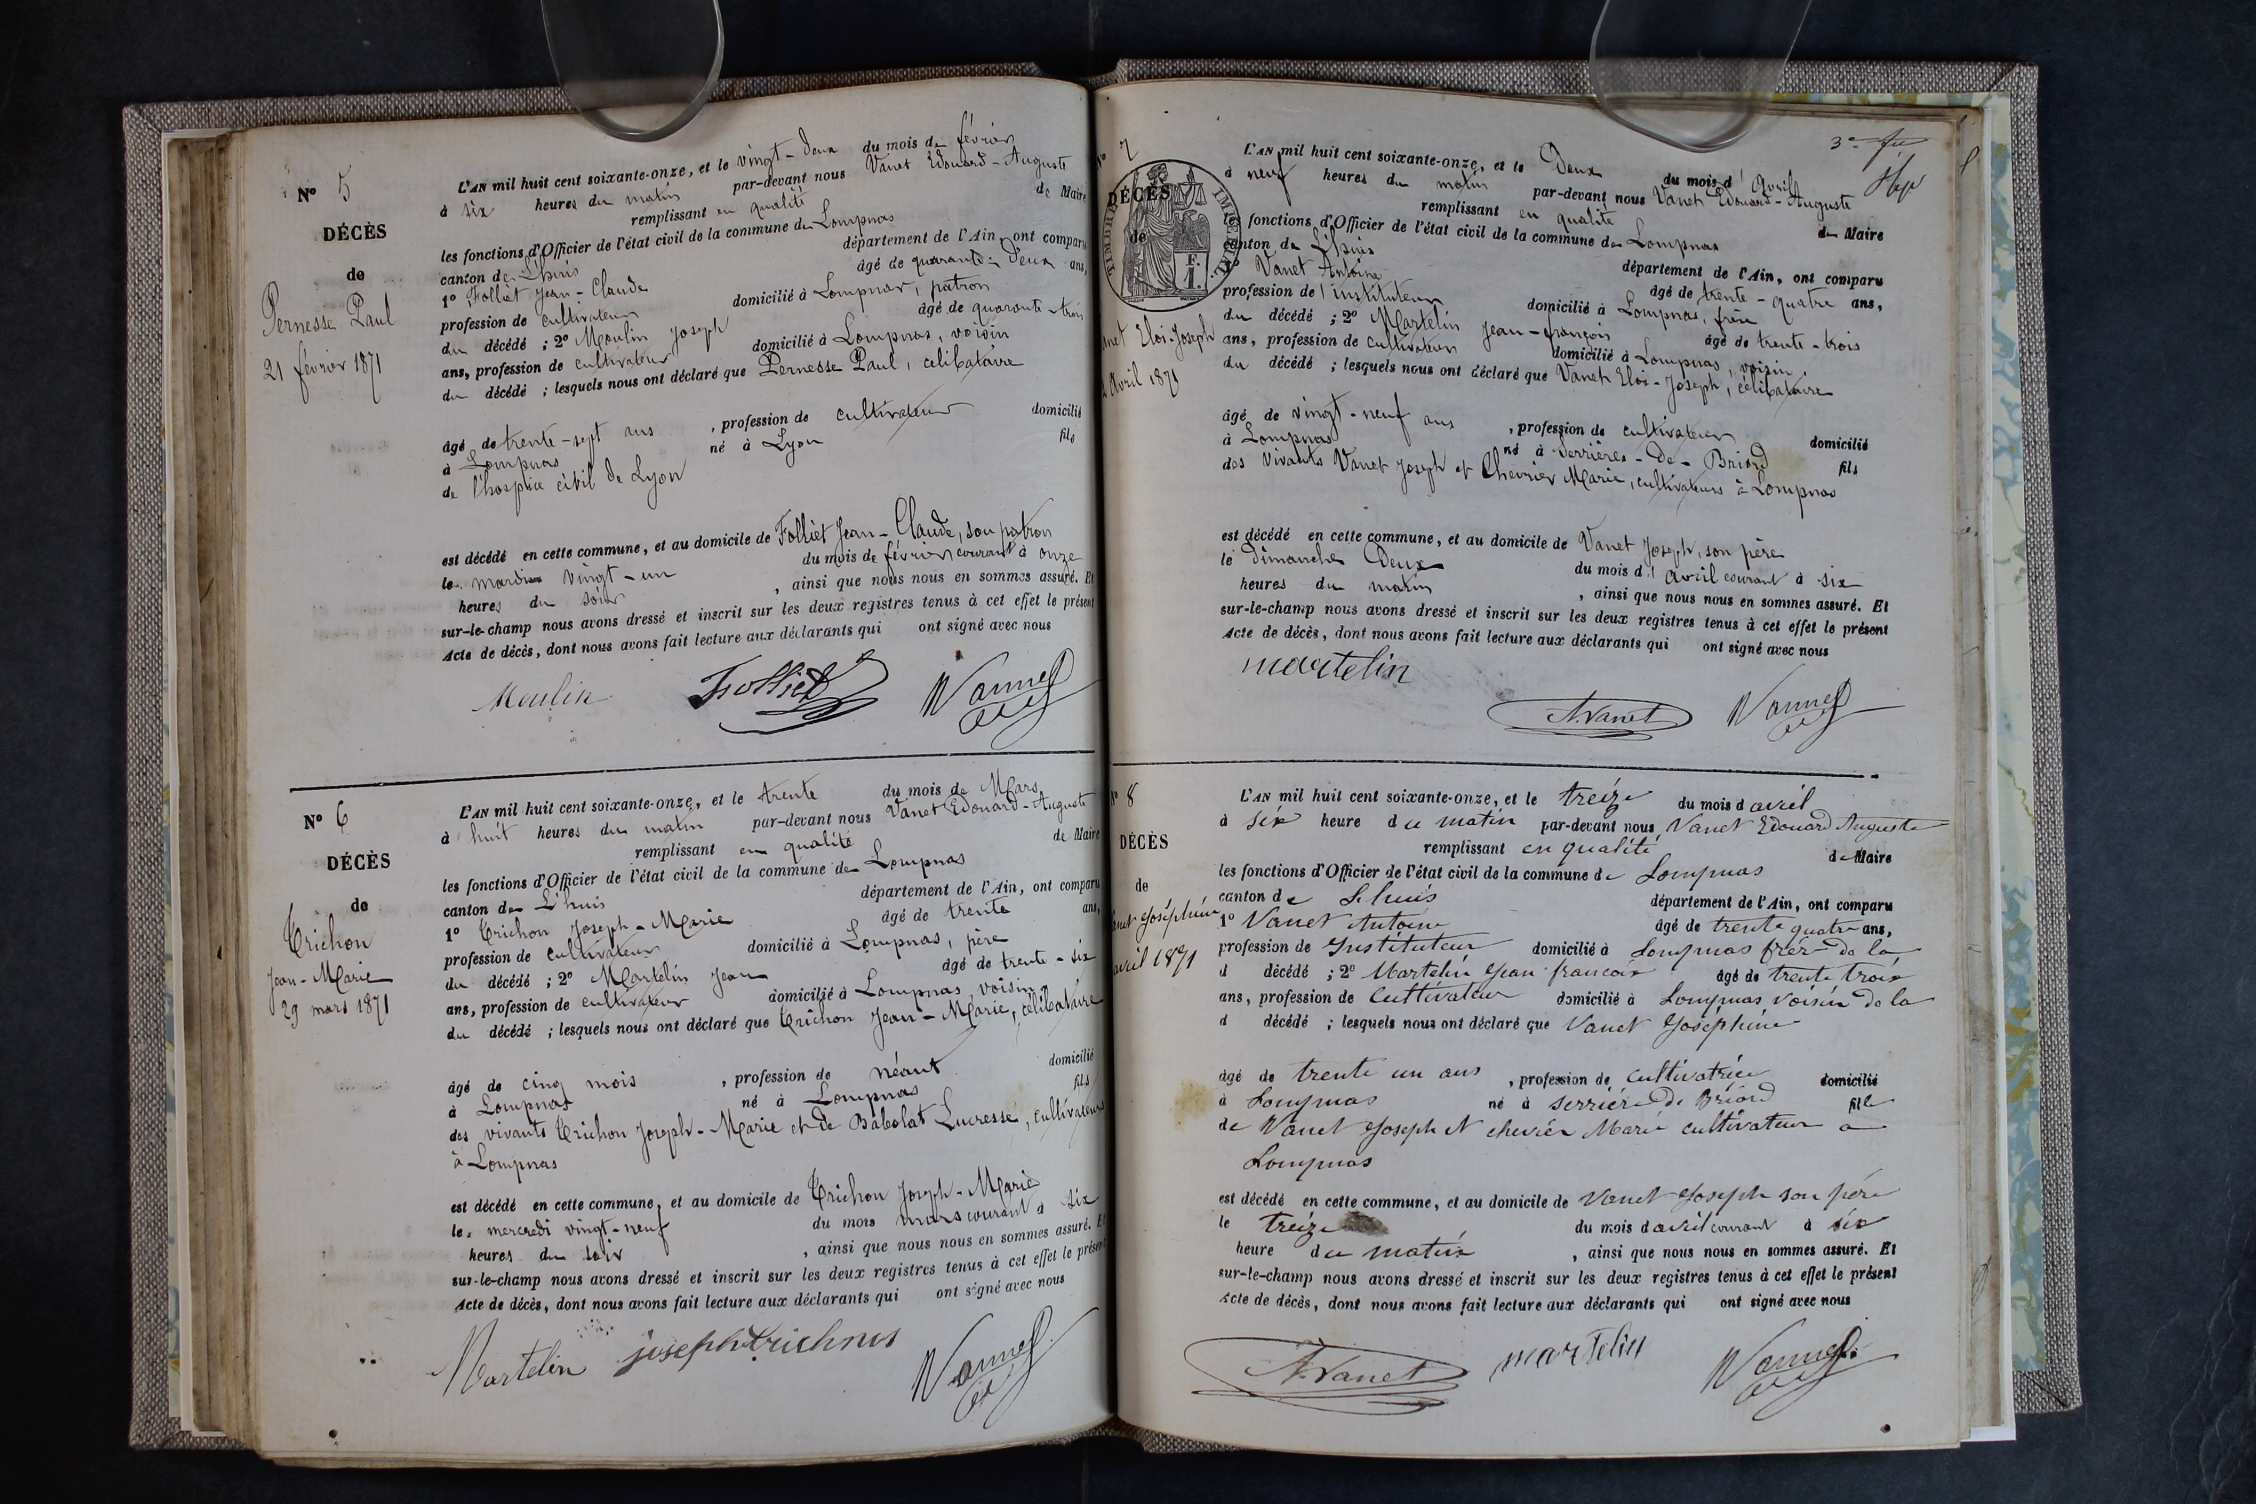 N° 5
DÉCÈS
de
Pernesse Paul
21 février 1871
L'AN mil huit cent soixante-onze, et le vingt-deux du mois de février
à six heures du matin par-devant nous Vanet Edouard-Auguste
remplissant en qualité de Maire
les fonctions d'Officier de l'état civil de la commune de Lompnas
canton de Lhuis département de l'Ain, ont comparu
1° Folliet Jean-Claude âgé de quarante-deux ans,
profession de cultivateur domicilié à Lompnas, patron
du décédé ; 2° Moulin Joseph âgé de quarante-trois
ans, profession de cultivateur domicilié à Lompnas, voisin
du décédé ; lesquels nous ont déclaré que Pernesse Paul, célibataire
âgé de trente-sept ans , profession de cultivateur domicilié
à Lompnas né à Lyon fils
de l'hospice civil de Lyon
est décédé en cette commune, et au domicile de Folliet Jean-Claude, son patron
le mardi vingt-un du mois de février courant à onze
heures du soir , ainsi que nous nous en sommes assuré. Et
sur-le-champ nous avons dressé et inscrit sur les deux registres tenus à cet effet le présent
Acte de décès, dont nous avons fait lecture aux déclarants qui ont signé avec nous
Moulin Folliet Vannet
N° 6
DÉCÈS
de
Trichon
Jean-Marie
29 mars 1871
L'AN mil huit cent soixante-onze, et le trente du mois de Mars
à huit heures du matin par-devant nous Vanet Edouard-Auguste
remplissant en qualité de Maire
les fonctions d'Officier de l'état civil de la commune de Lompnas
canton de L'huis département de l'Ain, ont comparu
1° Trichon Joseph-Marie âgé de trente ans,
profession de cultivateur domicilié à Lompnas, père
du décédé ; 2° Martelin Jean âgé de trente-six
ans, profession de cultivateur domicilié à Lompnas, voisin
du décédé ; lesquels nous ont déclaré que Trichon Jean-Marie, célibataire
âgé de cinq mois , profession de néant domicilié
à Lompnas né à Lompnas fils
des vivants Trichon Joseph-Marie et de Babolat Lucresse, cultivateurs
à Lompnas
est décédé en cette commune, et au domicile de Trichon Joseph-Marie
le mercredi vingt-neuf du mois mars courant à six
heures du soir , ainsi que nous nous en sommes assuré. Et
sur-le-champ nous avons dressé et inscrit sur les deux registres tenus à cet effet le présent
Acte de décès, dont nous avons fait lecture aux déclarants qui ont signé avec nous
Martelin joseph trichnos Vannet
3e
N° 7
DÉCÈS
de
TIMBRE IMPÉRIAL
F. 1.
anet Eloi-Joseph
2 Avril 1871
L'AN mil huit cent soixante-onze, et le Deux du mois d'avril
à neuf heures du matin par-devant nous Vanet Edouard-Auguste
remplissant en qualité de Maire
les fonctions d'Officier de l'état civil de la commune de Lompnas
canton de L'huis département de l'Ain, ont comparu
1° Vanet Antoine âgé de trente-quatre ans,
profession de l'instituteur domicilié à Lompnas, frère
du décédé ; 2° Martelin Jean-françois âgé de trente-trois
ans, profession de cultivateur domicilié à Lompnas, voisin
du décédé ; lesquels nous ont déclaré que Vanet Eloi-Joseph, célibataire
âgé de vingt-neuf ans , profession de cultivateur domicilié
à Lompnas né à Serrières-de-Briord fils
des vivants Vanet Joseph et Chevrier Marie, cultivateurs à Lompnas
est décédé en cette commune, et au domicile de Vanet Joseph, son père
le dimanche Deux du mois d'avril courant à six
heures du matin , ainsi que nous nous en sommes assuré. Et
sur-le-champ nous avons dressé et inscrit sur les deux registres tenus à cet effet le présent
Acte de décès, dont nous avons fait lecture aux déclarants qui ont signé avec nous
martelin A. Vanet Vannet
N° 8
DÉCÈS
de
anet Joséphine
avril 1871
L'AN mil huit cent soixante-onze, et le treize du mois d avril
à six heure du matin par-devant nous Vanet Edouard Auguste
remplissant en qualité de Maire
les fonctions d'Officier de l'état civil de la commune de Lompnas
canton de Lhuis département de l'Ain, ont comparu
1° Vanet Antoine âgé de trente quatre ans,
profession de Instituteur domicilié à Lompnas frère de la
d décédé ; 2° Martelin Jean françois âgé de trente trois
ans, profession de Cultivateur domicilié à Lompnas voisin de la
d décédé ; lesquels nous ont déclaré que Vanet Joséphine
âgé de trente un ans , profession de cultivatrice domicilié
à Lompnas né à Serrière de Briord fille
de Vanet Joseph et chevrier Marie cultivateur a
Lompnas
est décédé en cette commune, et au domicile de Vanet Joseph son père
le treize du mois d avril courant à six
heure du matin , ainsi que nous nous en sommes assuré. Et
sur-le-champ nous avons dressé et inscrit sur les deux registres tenus à cet effet le présent
Acte de décès, dont nous avons fait lecture aux déclarants qui ont signé avec nous
A. Vanet martelin Vannet